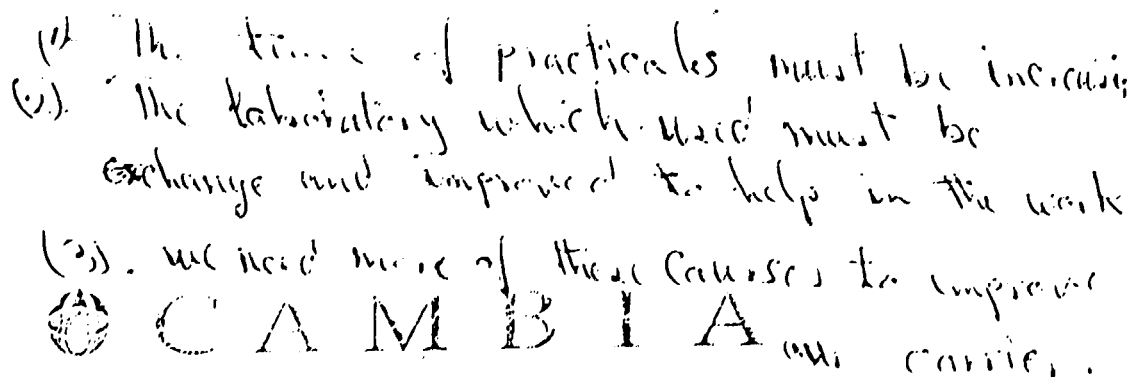 (1) The time of practicales must be increasi
(2). The laboratory which used must be
exchange and improved to help in the work
(3). we need more of these Courses to improve
CAMBIA
our carrier.